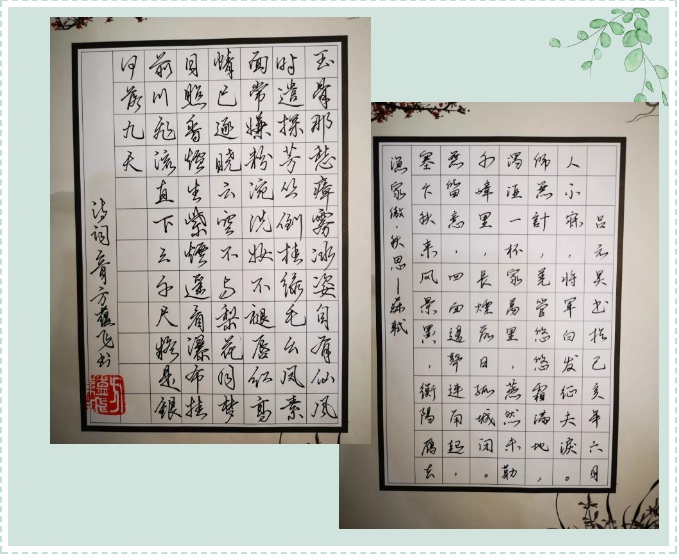 玉骨那愁瘴雾冰姿自有仙风
时遣探芳丛倒挂绿毛幺凤素
面常嫌粉涴洗妆不褪唇红高
情已逐晓云空不与梨花同梦
日照香炉生紫烟遥看瀑布挂
前川飞流直下三千尺疑是银
河落九天
诗词 方蕴飞书
渔家傲·秋思—苏轼
塞下秋来风景异,衡阳雁去
無留意,四面边声连角起,
千嶂里,长煙落日,孤城闭。
浊酒一杯,家万里,燕然未勒
归無计,羌管悠悠霜满地,
人不寐,将军白发征夫泪。
吕 昊书於己亥年六月